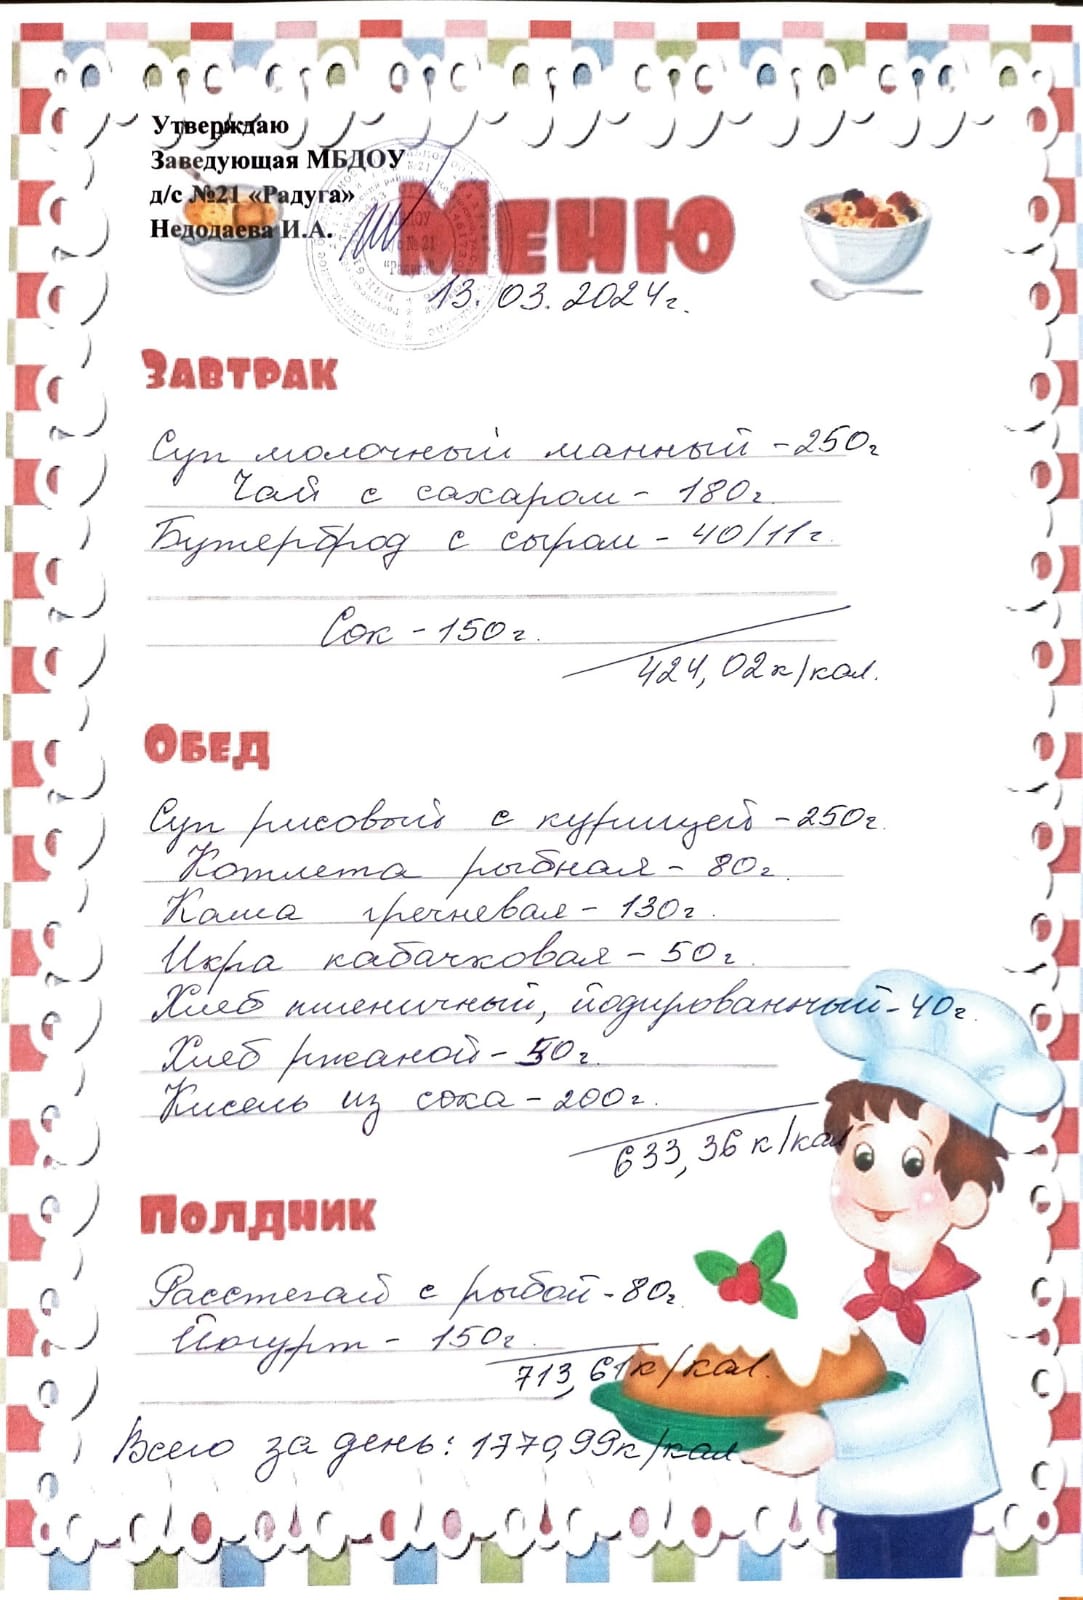 Утверждаю
Заведующая МБДОУ
д/с №21 «Радуга»
Недодаева И.А.
Меню
13.03.2024г.
Завтрак
Суп молочный манный - 250г
Чай с сахаром - 180г.
Бутерброд с сыром - 40/11г.
Сок - 150г.
424,02к/кал.
Обед
Суп рисовый с курицей - 250г.
Котлета рыбная - 80г.
Каша гречневая - 130г.
Икра кабачковая - 50г.
Хлеб пшеничный, йодированный - 40г.
Хлеб ржаной - 50г.
Кисель из сока - 200г.
633,36 к/кал
Полдник
Расстегай с рыбой - 80г.
Йогурт - 150г.
713,61к/кал.
Всего за день: 1770,99к/кал.